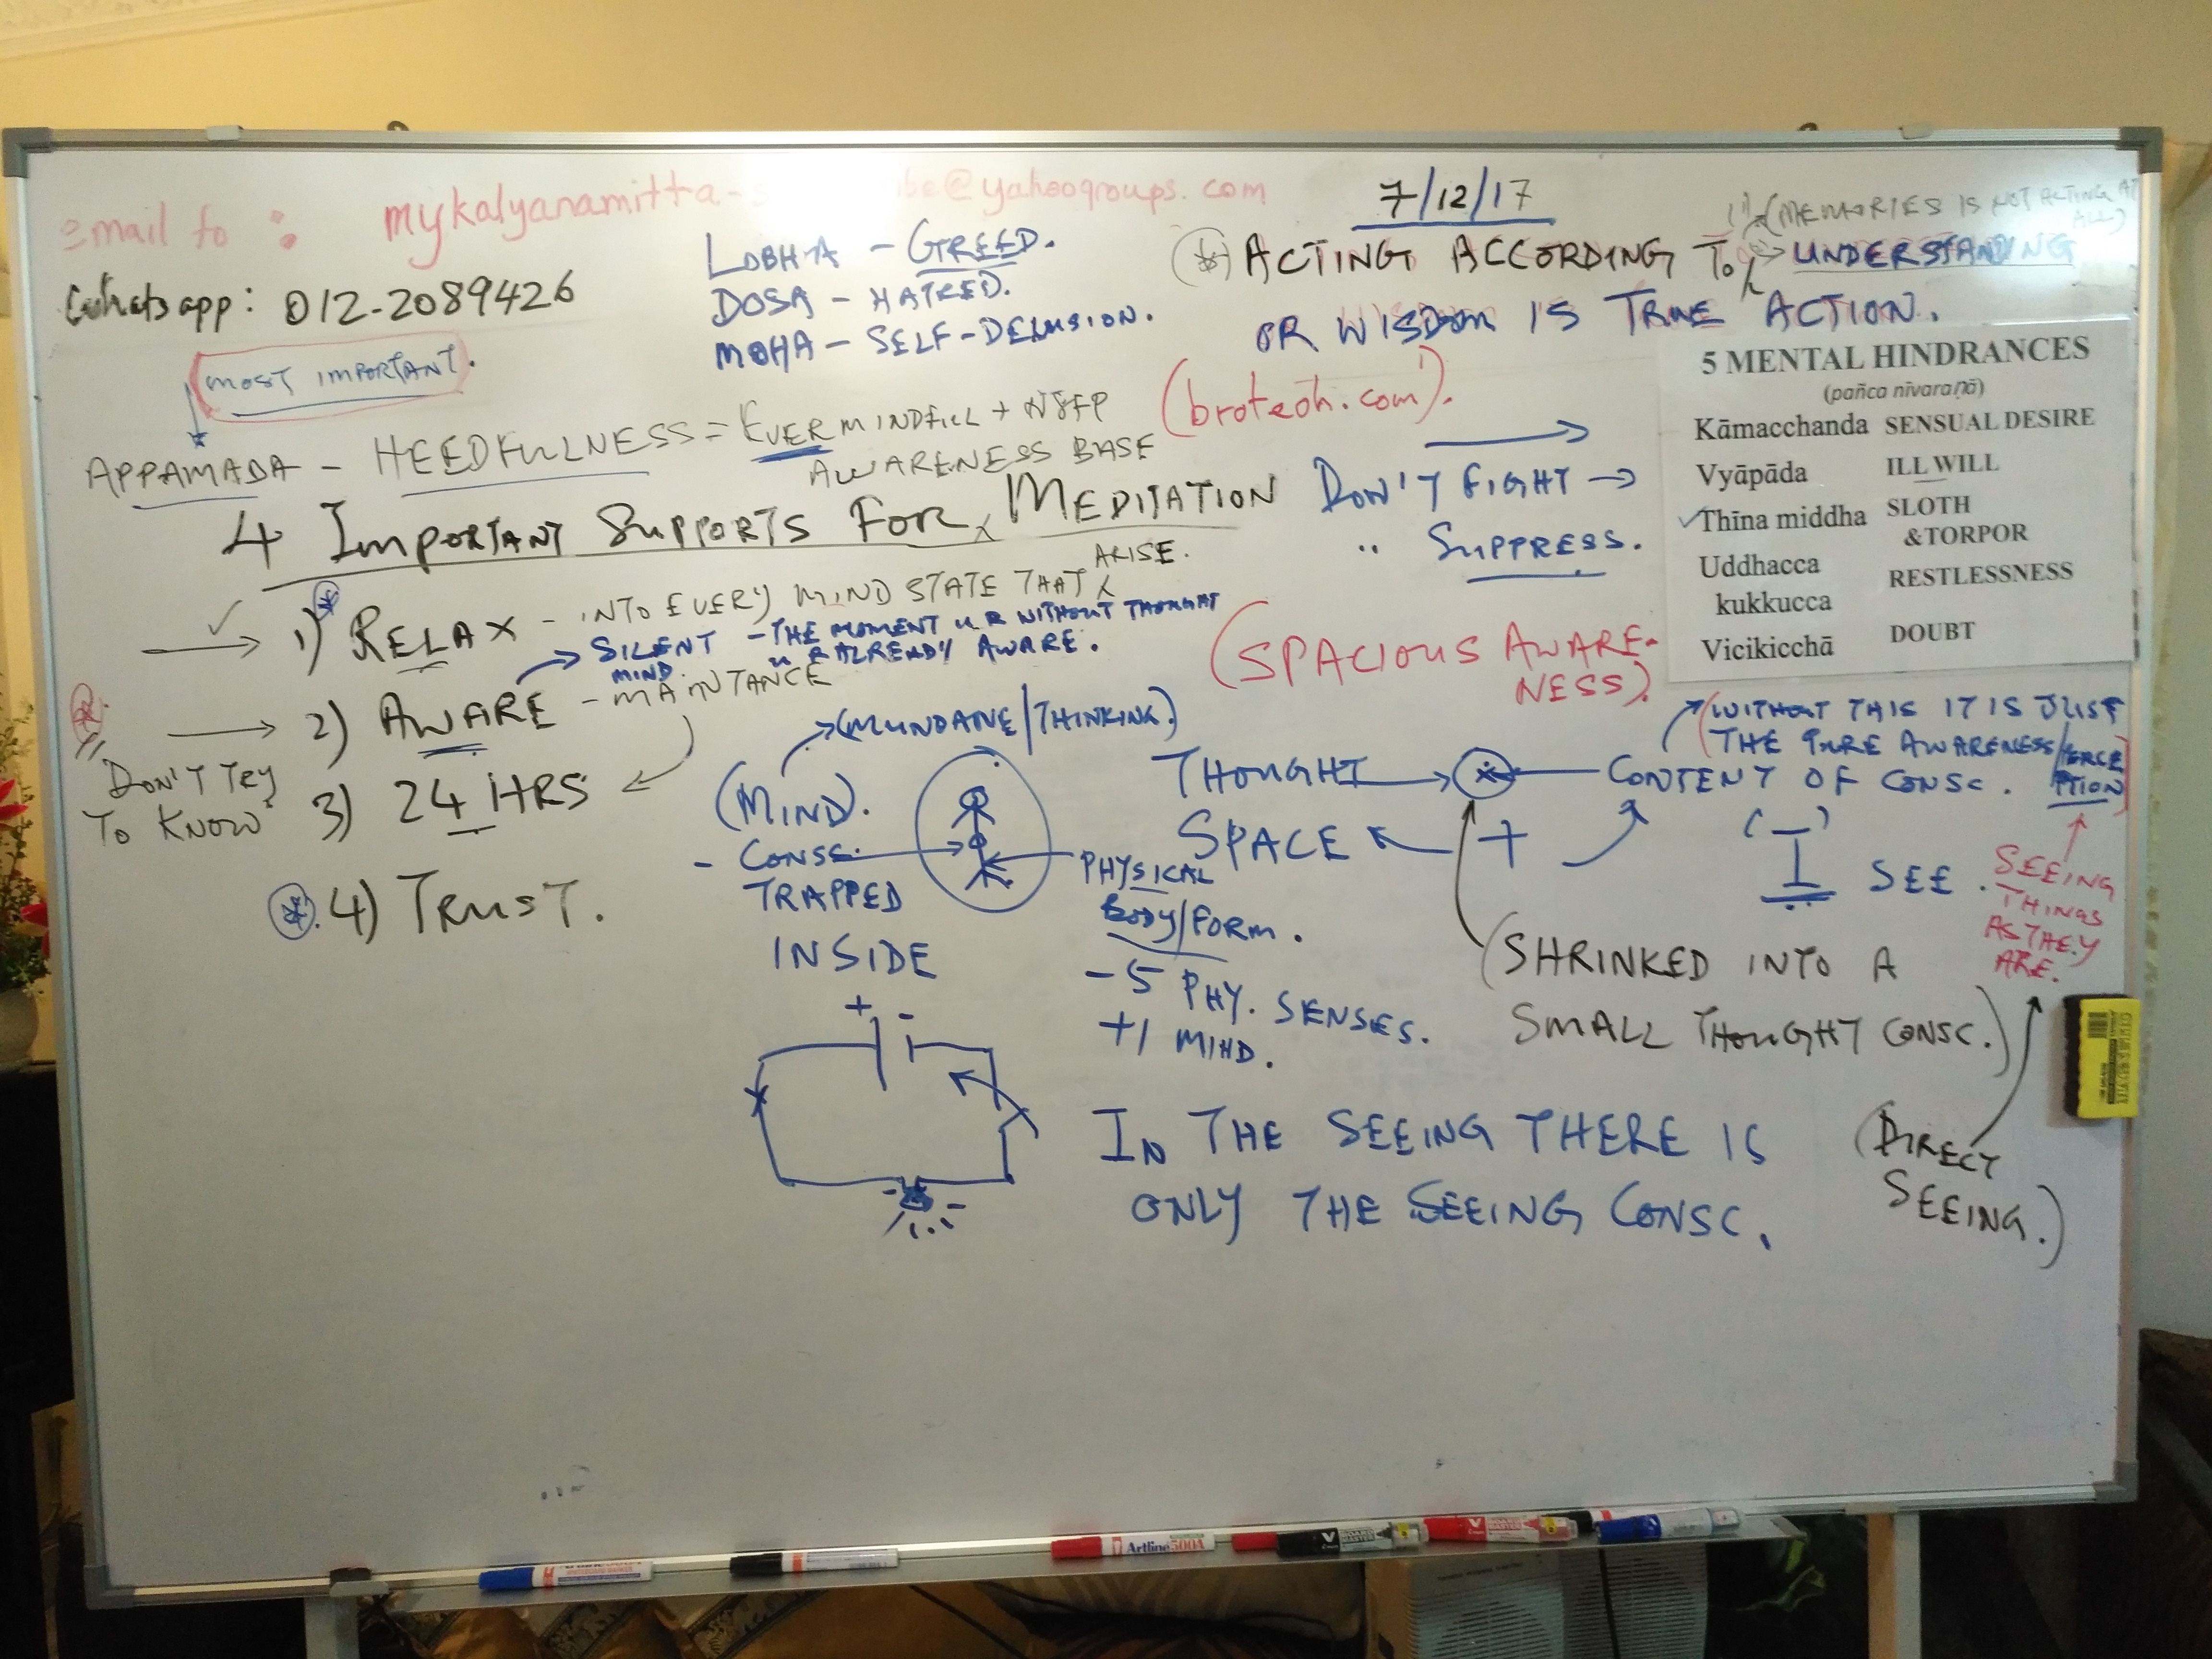 email to : mykalyanamitta- be@yahoogroups.com
Whatsapp: 012-2089426
7/12/17
LOBHA - GREED.
DOSA - HATRED.
MOHA - SELF-DELUSION.
(MEMORIES IS NOT ACTING AT ALL)
ACTING ACCORDING TO UNDERSTANDING
OR WISDOM IS TRUE ACTION.
MOST IMPORTANT.
APPAMADA - HEEDFULLNESS = EVER MINDFULL +
AWARENESS BASE
(broteoh.com).
4 IMPORTANT SUPPORTS FOR MEDITATION
DON'T FIGHT →
" SUPPRESS.
1) RELAX - INTO EVERY MIND STATE THAT ARISE.
SILENT MIND - THE MOMENT U R WITHOUT THOUGHT
U R ALREADY AWARE.
2) AWARE - MAINTANCE
DON'T TRY
TO KNOW
3) 24 HRS
4) TRUST.
(SPACIOUS AWARE-
NESS).
5 MENTAL HINDRANCES
(pañca nīvaraṇā)
Kāmacchanda SENSUAL DESIRE
Vyāpāda ILL WILL
Thīna middha SLOTH
&TORPOR
Uddhacca
kukkucca RESTLESSNESS
Vicikicchā DOUBT
(MUNDANE/THINKING.)
(MIND).
- CONSC.
TRAPPED
INSIDE
PHYSICAL
BODY/FORM.
- 5 PHY. SENSES.
+1 MIND.
+ -
THOUGHT
SPACE
+
CONTENT OF CONSC.
(WITHOUT THIS IT IS JUST
THE PURE AWARENESS/PERCE
PTION)
'I' SEE.
SEEING
THINGS
AS THEY
ARE.
(SHRINKED INTO A
SMALL THOUGHT CONSC.)
IN THE SEEING THERE IS
ONLY THE SEEING CONSC.
(DIRECT
SEEING.)
Artline 500A